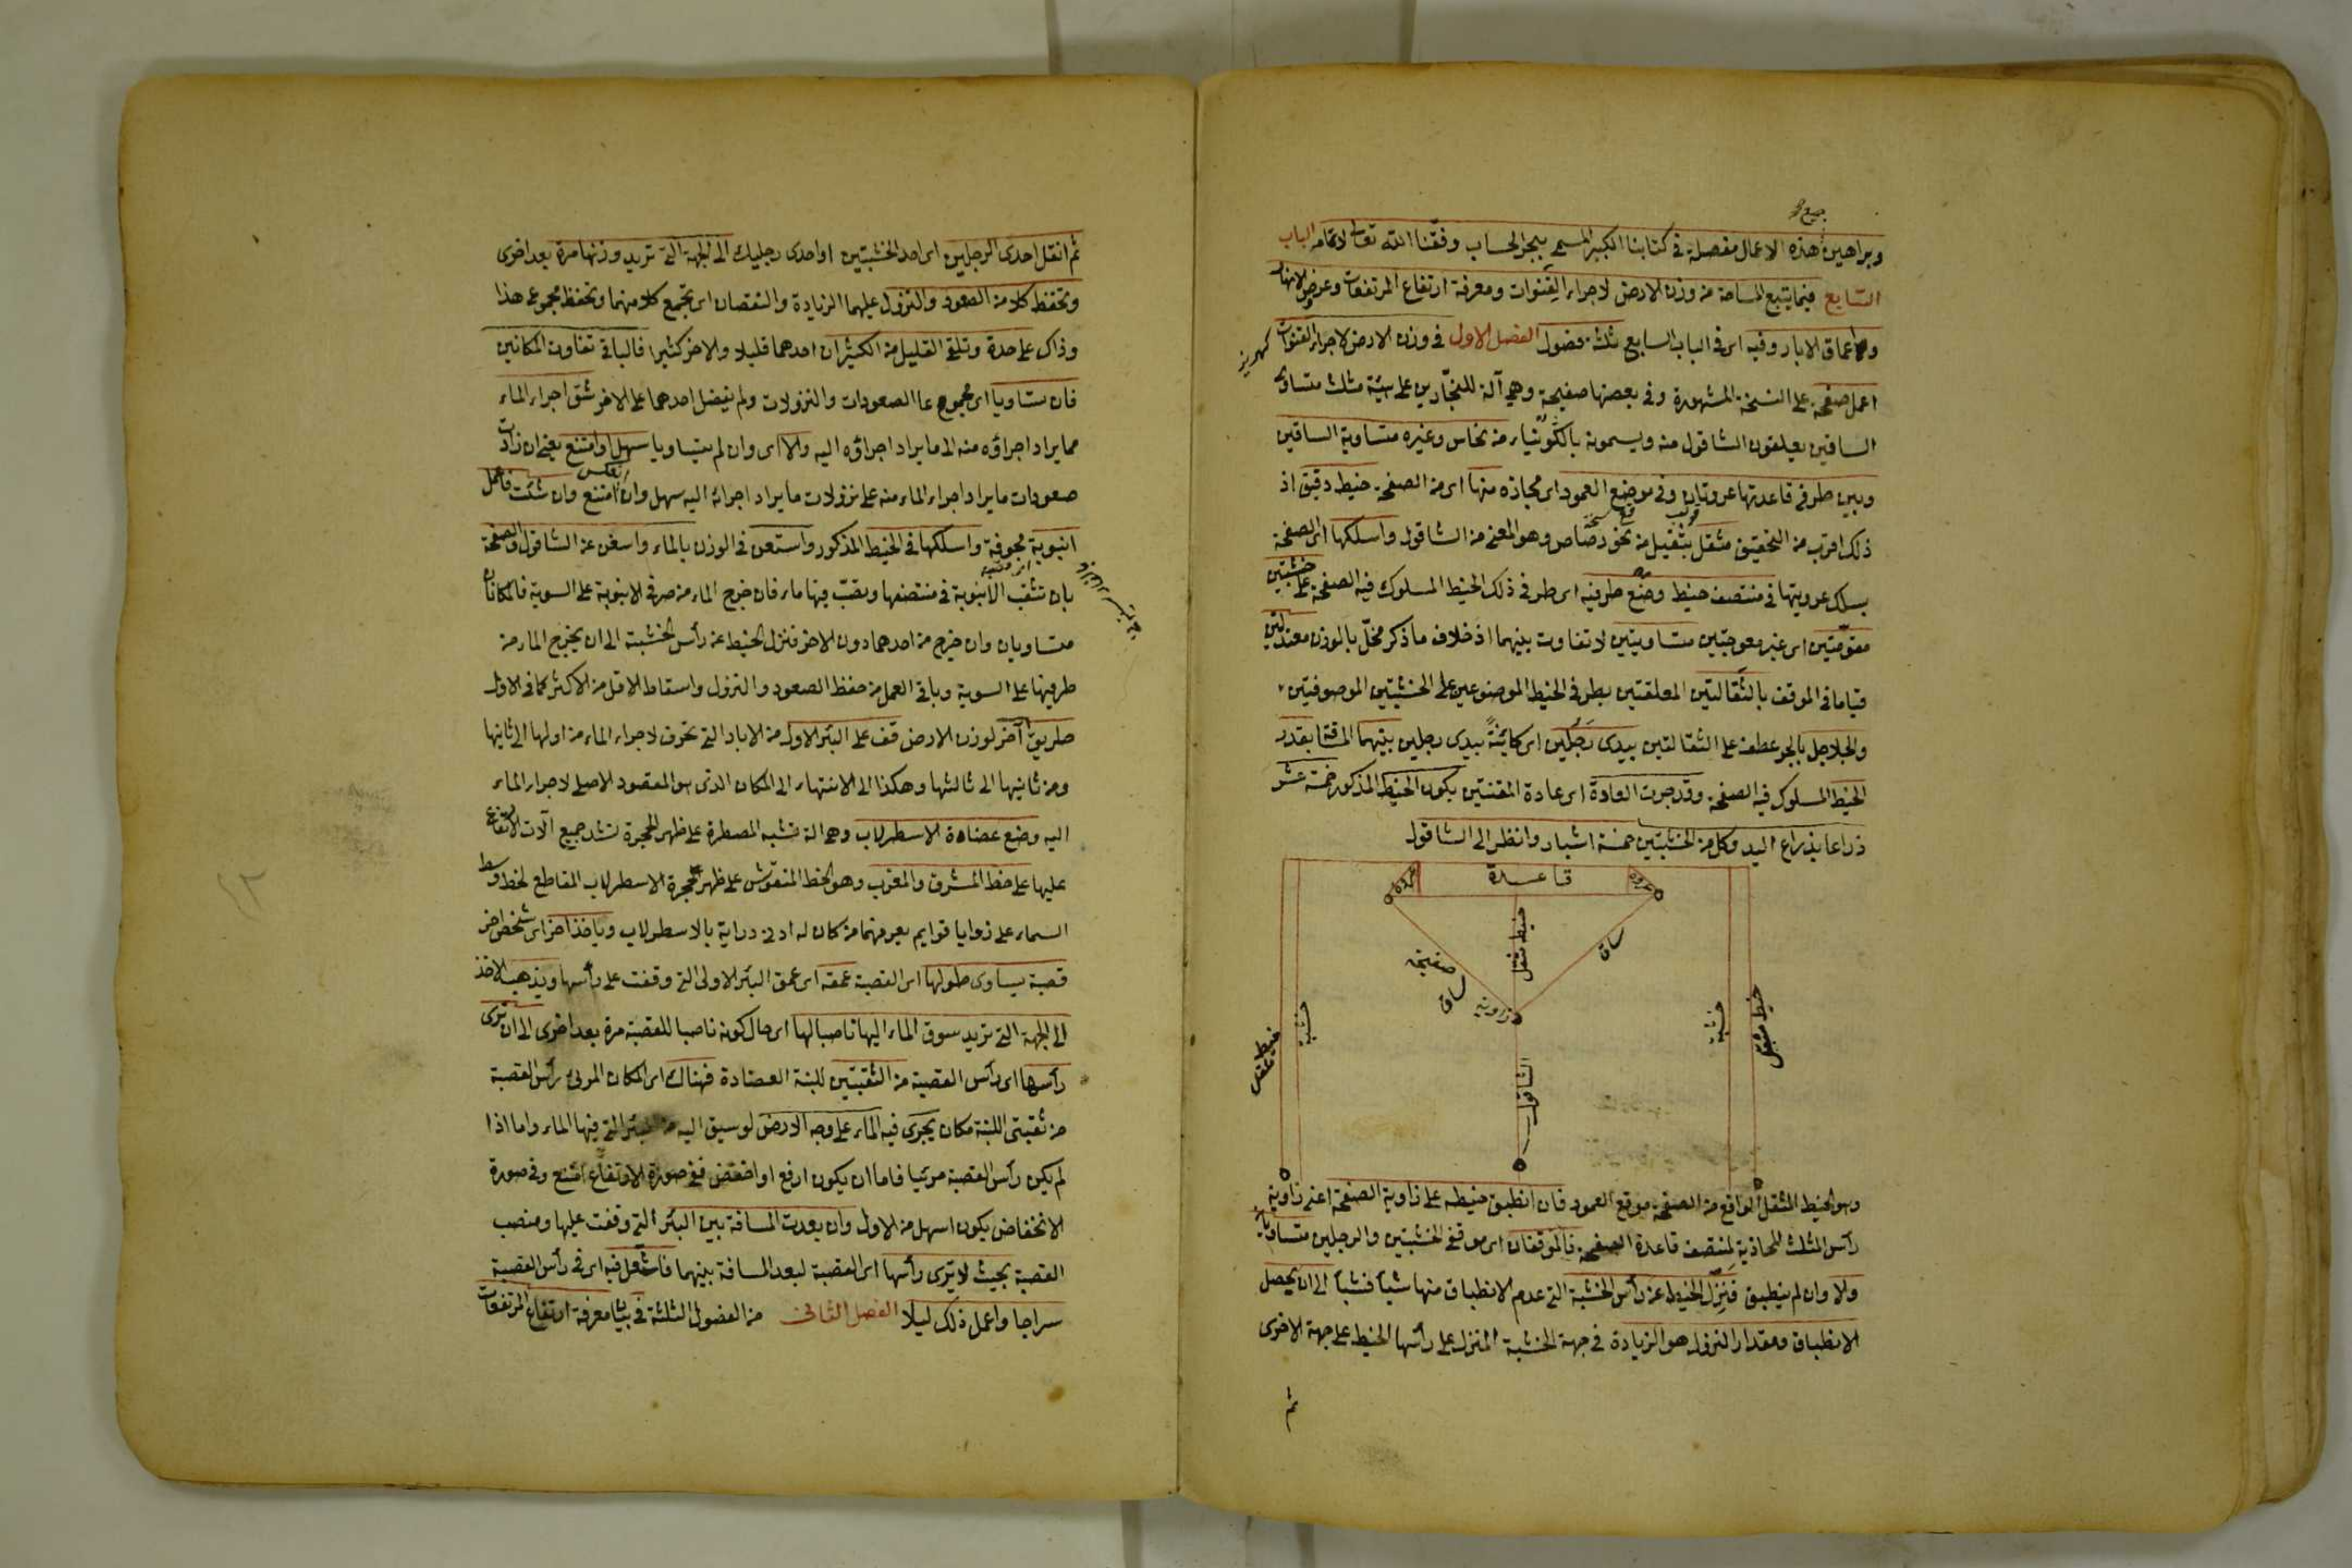 جميع
وبراهين هذه الاعمال مفصلة في كتابنا الكبير المسمى ببحر الحساب وفقنا الله تعالى لاتمامه الباب
السابع فيما يتبع المساحة من وزن الارض لاجراء القنوات ومعرفة ارتفاع المرتفعات وعروض الانهار
واعماق الابار وفيه اى في الباب السابع ثلثة فصول الفصل الاول في وزن الارض لاجراء القنوات
كهريز
اعمل صفحة على النسخة المشهورة وفي بعضها صفيحة وهي آلة للنجارين على هيئة مثلث متساوى
الساقين يعلقون الشاقول منه ويسمونه بالكونيا من نحاس وغيره متساوية الساقين
وبين طرفي قاعدتها عروتان وفي موضع العمود اى محاذه منها اى من الصفحة خيط دقيق اذ
ذلك اقرب من التحقيق مثقل بثقيل من نحو رصاص وهو المعنى من الشاقول واسلكها اى الصفحة
يسلك عروتيها في منتصف خيط وضع طرفيه اى طرفي ذلك الخيط المسلوك فيه الصفحة على خشبتين
مقومتين اى غير معوجتين متساويتين لا تفاوت بينهما اذ خلاف ما ذكر مخل بالوزن معتدلتين
قياما في الموقف بالثقالتين المعلقتين بطرفي الخيط الموضوعين على الخشبتين الموصوفتين
والجلاجل بالجر عطف على الثقالتين بيدى رجلين اى كاينة بيدى رجلين بينهما المسافة بقدر
الخيط المسلوك فيه الصفحة وقد جرت العادة اى عادة المقننين بكون الخيط المذكور خمسة عشر
ذراعا بذراع اليد وكل من الخشبتين خمسة اشبار وانظر الى الشاقول
قاعدة
عروة
عروة
خيط مثقل
ساق
صفيحة
ساق
زاوية
خشبة
خشبة
خيط مثقل
خيط مثقل
الشاقول
وهو الخيط المثقل الواقع من الصفحة موقع العمود فان انطبق خيطه على زاوية الصفحة اعنى زاوية
رأس المثلث المحاذية لمنتصف قاعدة الصفحة فالموقفان اى موقفى الخشبتين والرجلين متساويان
والا وان لم ينطبق فنزل الخيط عن رأس الخشبة التي عدم الانطباق منها شيأ فشيأ الى ان يحصل
الانطباق ومقدار النزول هو الزيادة في جهة الخشبة المنزل على رأسها الخيط على جهة الاخرى
ثم
ثم انقل احدى الرجلين اى احد الخشبتين او احدى رجليك الى الجهة التي تريد وزنها مرة بعد اخرى
وتحفظ كلا من الصعود والنزول عليهما الزيادة والنقصان اى تجمع كلا منهما وتحفظ مجموع هذا
وذاك على حدة وتلقى القليل من الكثير ان احدهما قليلا والاخر كثيرا فالباقي تفاوت المكانين
فان تساويا اى مجموعا الصعودات والنزولات ولم يفضل احدهما على الاخر شق اجراء الماء
مما يراد اجراؤه منه الى ما يراد اجراؤه اليه والا اى وان لم يتساويا سهل او امتنع يعنى ان زادت
صعودات ما يراد اجراء الماء منه على نزولات ما يراد اجرائه اليه سهل وان انعكس امتنع وان شئت فاعمل
انبوبة مجوفة واسلكها في الخيط المذكور واستعن في الوزن بالماء واستغن عن الشاقول والصفحة
بان تثقب الانبوبة في منتصفها وتصب فيها ماء فان خرج الماء من طرفي الانبوبة على السوية فالمكانان
متساويان وان خرج من احدهما دون الاخر فنزل الخيط عن رأس الخشبة الى ان يخرج الماء من
طرفيها على السوية وباقي العمل من حفظ الصعود والنزول واسقاط الاقل من الاكثر كما في الاول
طريق آخر لوزن الارض قف على البئر الاول من الابار التي تحفر لاجراء الماء من اولها الى ثانيها
ومن ثانيها الى ثالثها وهكذا الى الانتهاء الى المكان الذى هو المقصود الاصلى لاجراء الماء
اليه وضع عضادة الاسطرلاب وهي الة تشبه المسطرة على ظهر الحجرة تشد جميع آلات الارتفاع
عليها على خط المشرق والمغرب وهو الخط المنقوش على ظهر حجرة الاسطرلاب المقاطع لخط وسط
السماء على زوايا قوايم يعرفهما من كان له ادنى دراية بالاسطرلاب وياخذ اخر اى شخص اخر
قصبة يساوى طولها اى القصبة عمقه اى عمق البئر الاولى التي وقفت على رأسها ويذهب الاخذ
الى الجهة التي تريد سوق الماء اليها ناصبا لها اى حال كونه ناصبا للقصبة مرة بعد اخرى الى ان ترى
رأسها اى رأس القصبة من الثقبتين للبنة العضادة فهناك اى المكان المرئى رأس القصبة
من ثقبتى اللبنة مكان يجرى فيه الماء على وجه الارض لو سيق اليه من البئر التي فيها الماء واما اذا
لم يكن رأس القصبة مرئيا فاما ان يكون ارفع او اخفض ففي صورة الارتفاع امتنع وفي صورة
الانخفاض يكون اسهل من الاول وان بعدت المسافة بين البئر التي وقفت عليها ومنصب
القصبة بحيث لا يرى رأسها اى القصبة لبعد المسافة بينهما فاشعل فيه اى في رأس القصبة
سراجا واعمل ذلك ليلا الفصل الثاني من الفصول الثلثة في بيان معرفة ارتفاع المرتفعات